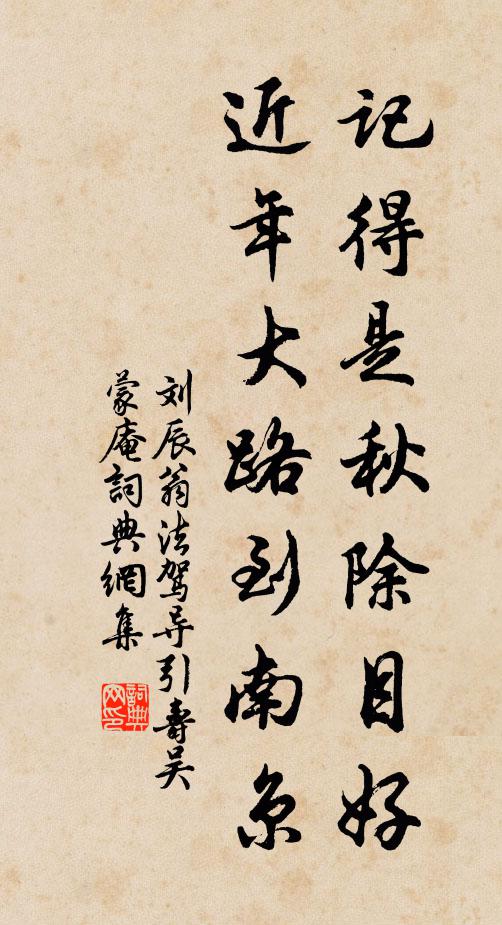 记得是秋除目好
近年大路到南京
刘辰翁法驾导引寿吴
蒙庵詞典網集
詞典网印